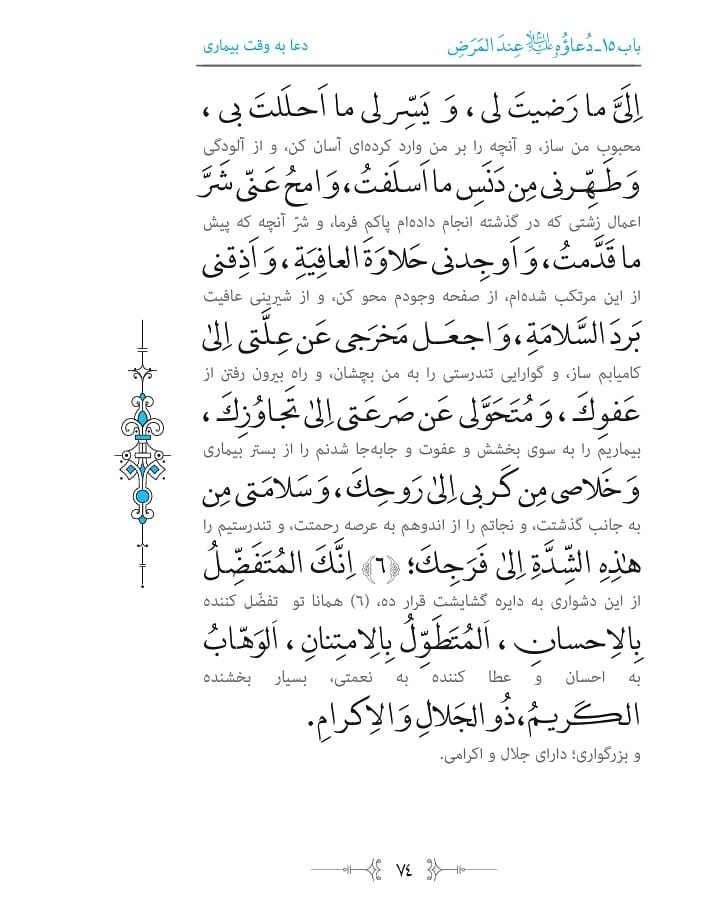 باب ۱۵ـ دُعاؤُه علیه‌السلام عِندَ المَرَضِ
دعا به وقت بیماری
اِلَیَّ ما رَضیتَ لی ، وَ یَسِّر لی ما اَحلَلتَ بی ،
محبوب من ساز، و آنچه را بر من وارد کرده‌ای آسان کن، و از آلودگی
وَ طَهِّرنی مِن دَنَسِ ما اَسلَفتُ، وَ امحُ عَنّی شَرَّ
اعمال زشتی که در گذشته انجام داده‌ام پاکم فرما، و شرّ آنچه که پیش
ما قَدَّمتُ، وَ اَوجِدنی حَلاوَةَ العافِیَةِ ، وَ اَذِقنی
از این مرتکب شده‌ام، از صفحه وجودم محو کن، و از شیرینی عافیت
بَردَ السَّلامَةِ ، وَ اجعَل مَخرَجی عَن عِلَّتی اِلیٰ
کامیابم ساز، و گوارایی تندرستی را به من بچشان، و راه بیرون رفتن از
عَفوِكَ ، وَ مُتَحَوَّلی عَن صَرعَتی اِلیٰ تَجاوُزِكَ ،
بیماریم را به سوی بخشش و عفوت و جابه‌جا شدنم را از بستر بیماری
وَ خَلاصی مِن کَربی اِلیٰ رَوحِكَ ، وَ سَلامَتی مِن
به جانب گذشتت، و نجاتم را از اندوهم به عرصه رحمتت، و تندرستیم را
هٰذِهِ الشِّدَّةِ اِلیٰ فَرَجِكَ؛ ﴿٦﴾ اِنَّكَ المُتَفَضِّلُ
از این دشواری به دایره گشایشت قرار ده، (٦) همانا تو تفضّل کننده
بِالاِحسانِ ، اَلمُتَطَوِّلُ بِالاِمتِنانِ ، اَلوَهّابُ
به احسان و عطا کننده به نعمتی، بسیار بخشنده
الکَریمُ، ذُو الجَلالِ وَ الاِکرامِ.
و بزرگواری؛ دارای جلال و اکرامی.
٧٤